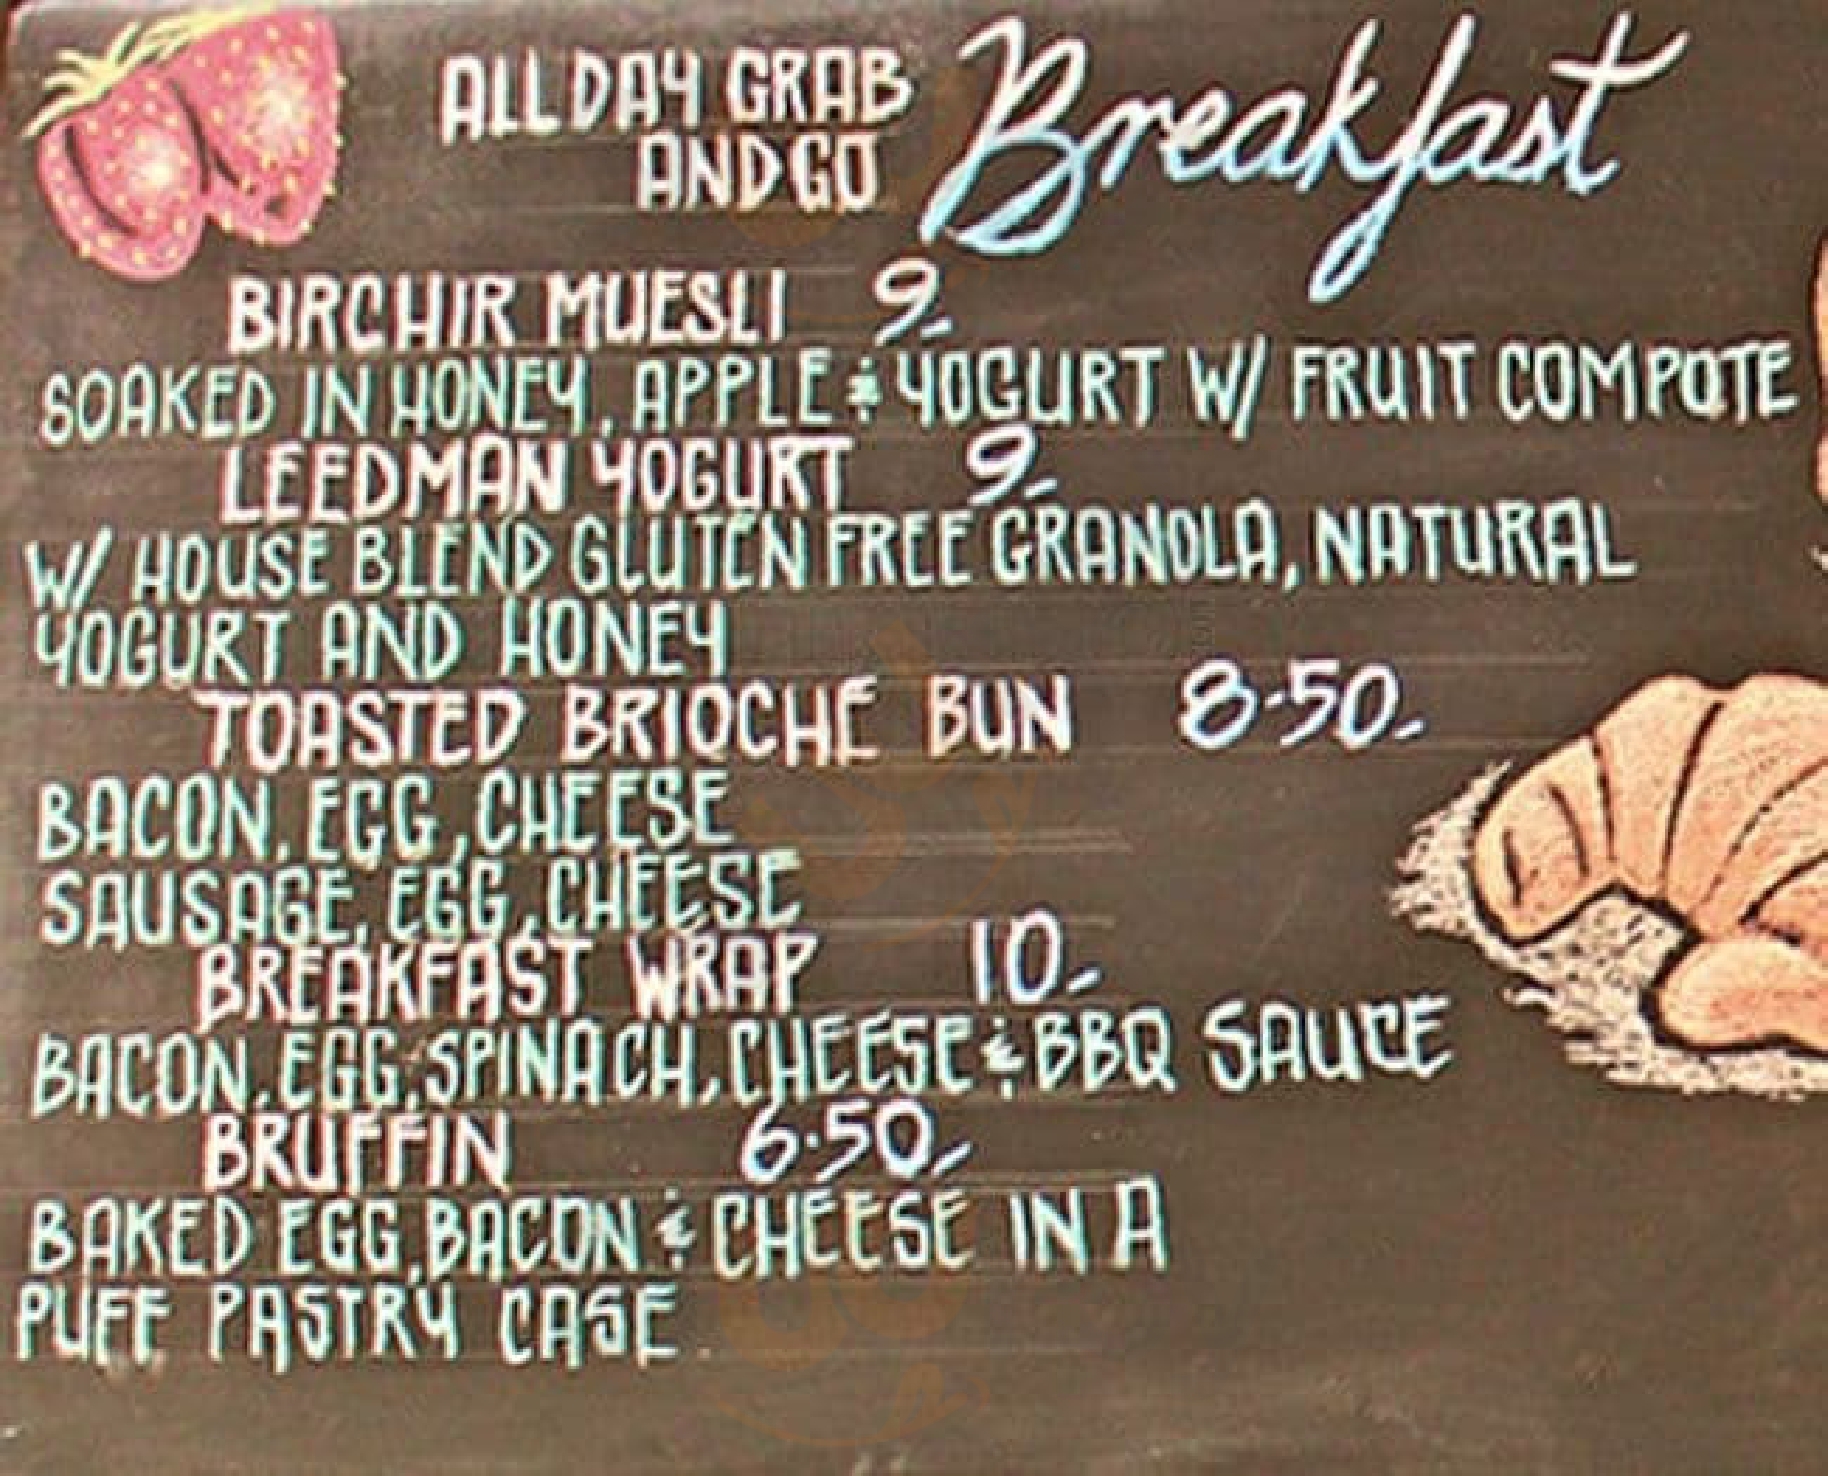 ALL DAY GRAB AND GO Breakfast
BIRCHIR MUESLI 9-
SOAKED IN HONEY, APPLE & YOGURT W/ FRUIT COMPOTE
LEEDMAN YOGURT 9-
W/ HOUSE BLEND GLUTEN FREE GRANOLA, NATURAL
YOGURT AND HONEY
TOASTED BRIOCHE BUN 8.50-
BACON, EGG, CHEESE
SAUSAGE, EGG, CHEESE
BREAKFAST WRAP 10-
BACON, EGG, SPINACH, CHEESE & BBQ SAUCE
BRUFFIN 6.50-
BAKED EGG, BACON & CHEESE IN A
PUFF PASTRY CASE